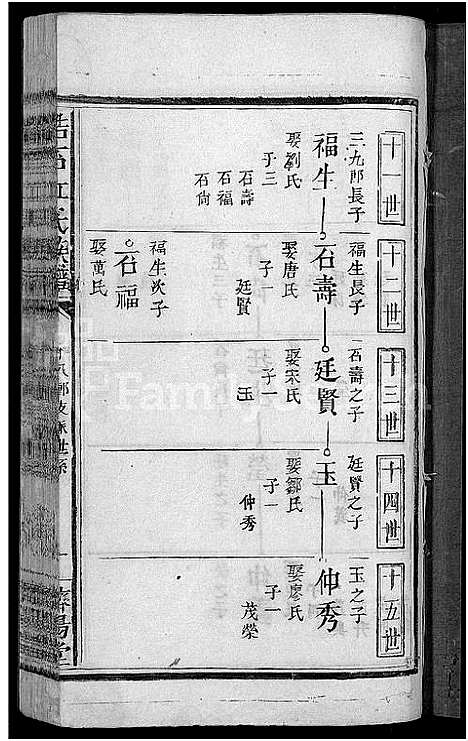 十一世
三九郎長子
福生
娶劉氏
子三
石壽
石福
石尙
十二世
福生長子
石壽
娶唐氏
子一
廷賢
福生次子
石福
娶萬氏
十三世
石壽之子
廷賢
娶宋氏
子一
玉
十四世
廷賢之子
玉
娶鄒氏
子一
仲秀
十五世
玉之子
仲秀
娶廖氏
子一
茂榮
江氏族譜
十八郎支派世系
濟陽堂